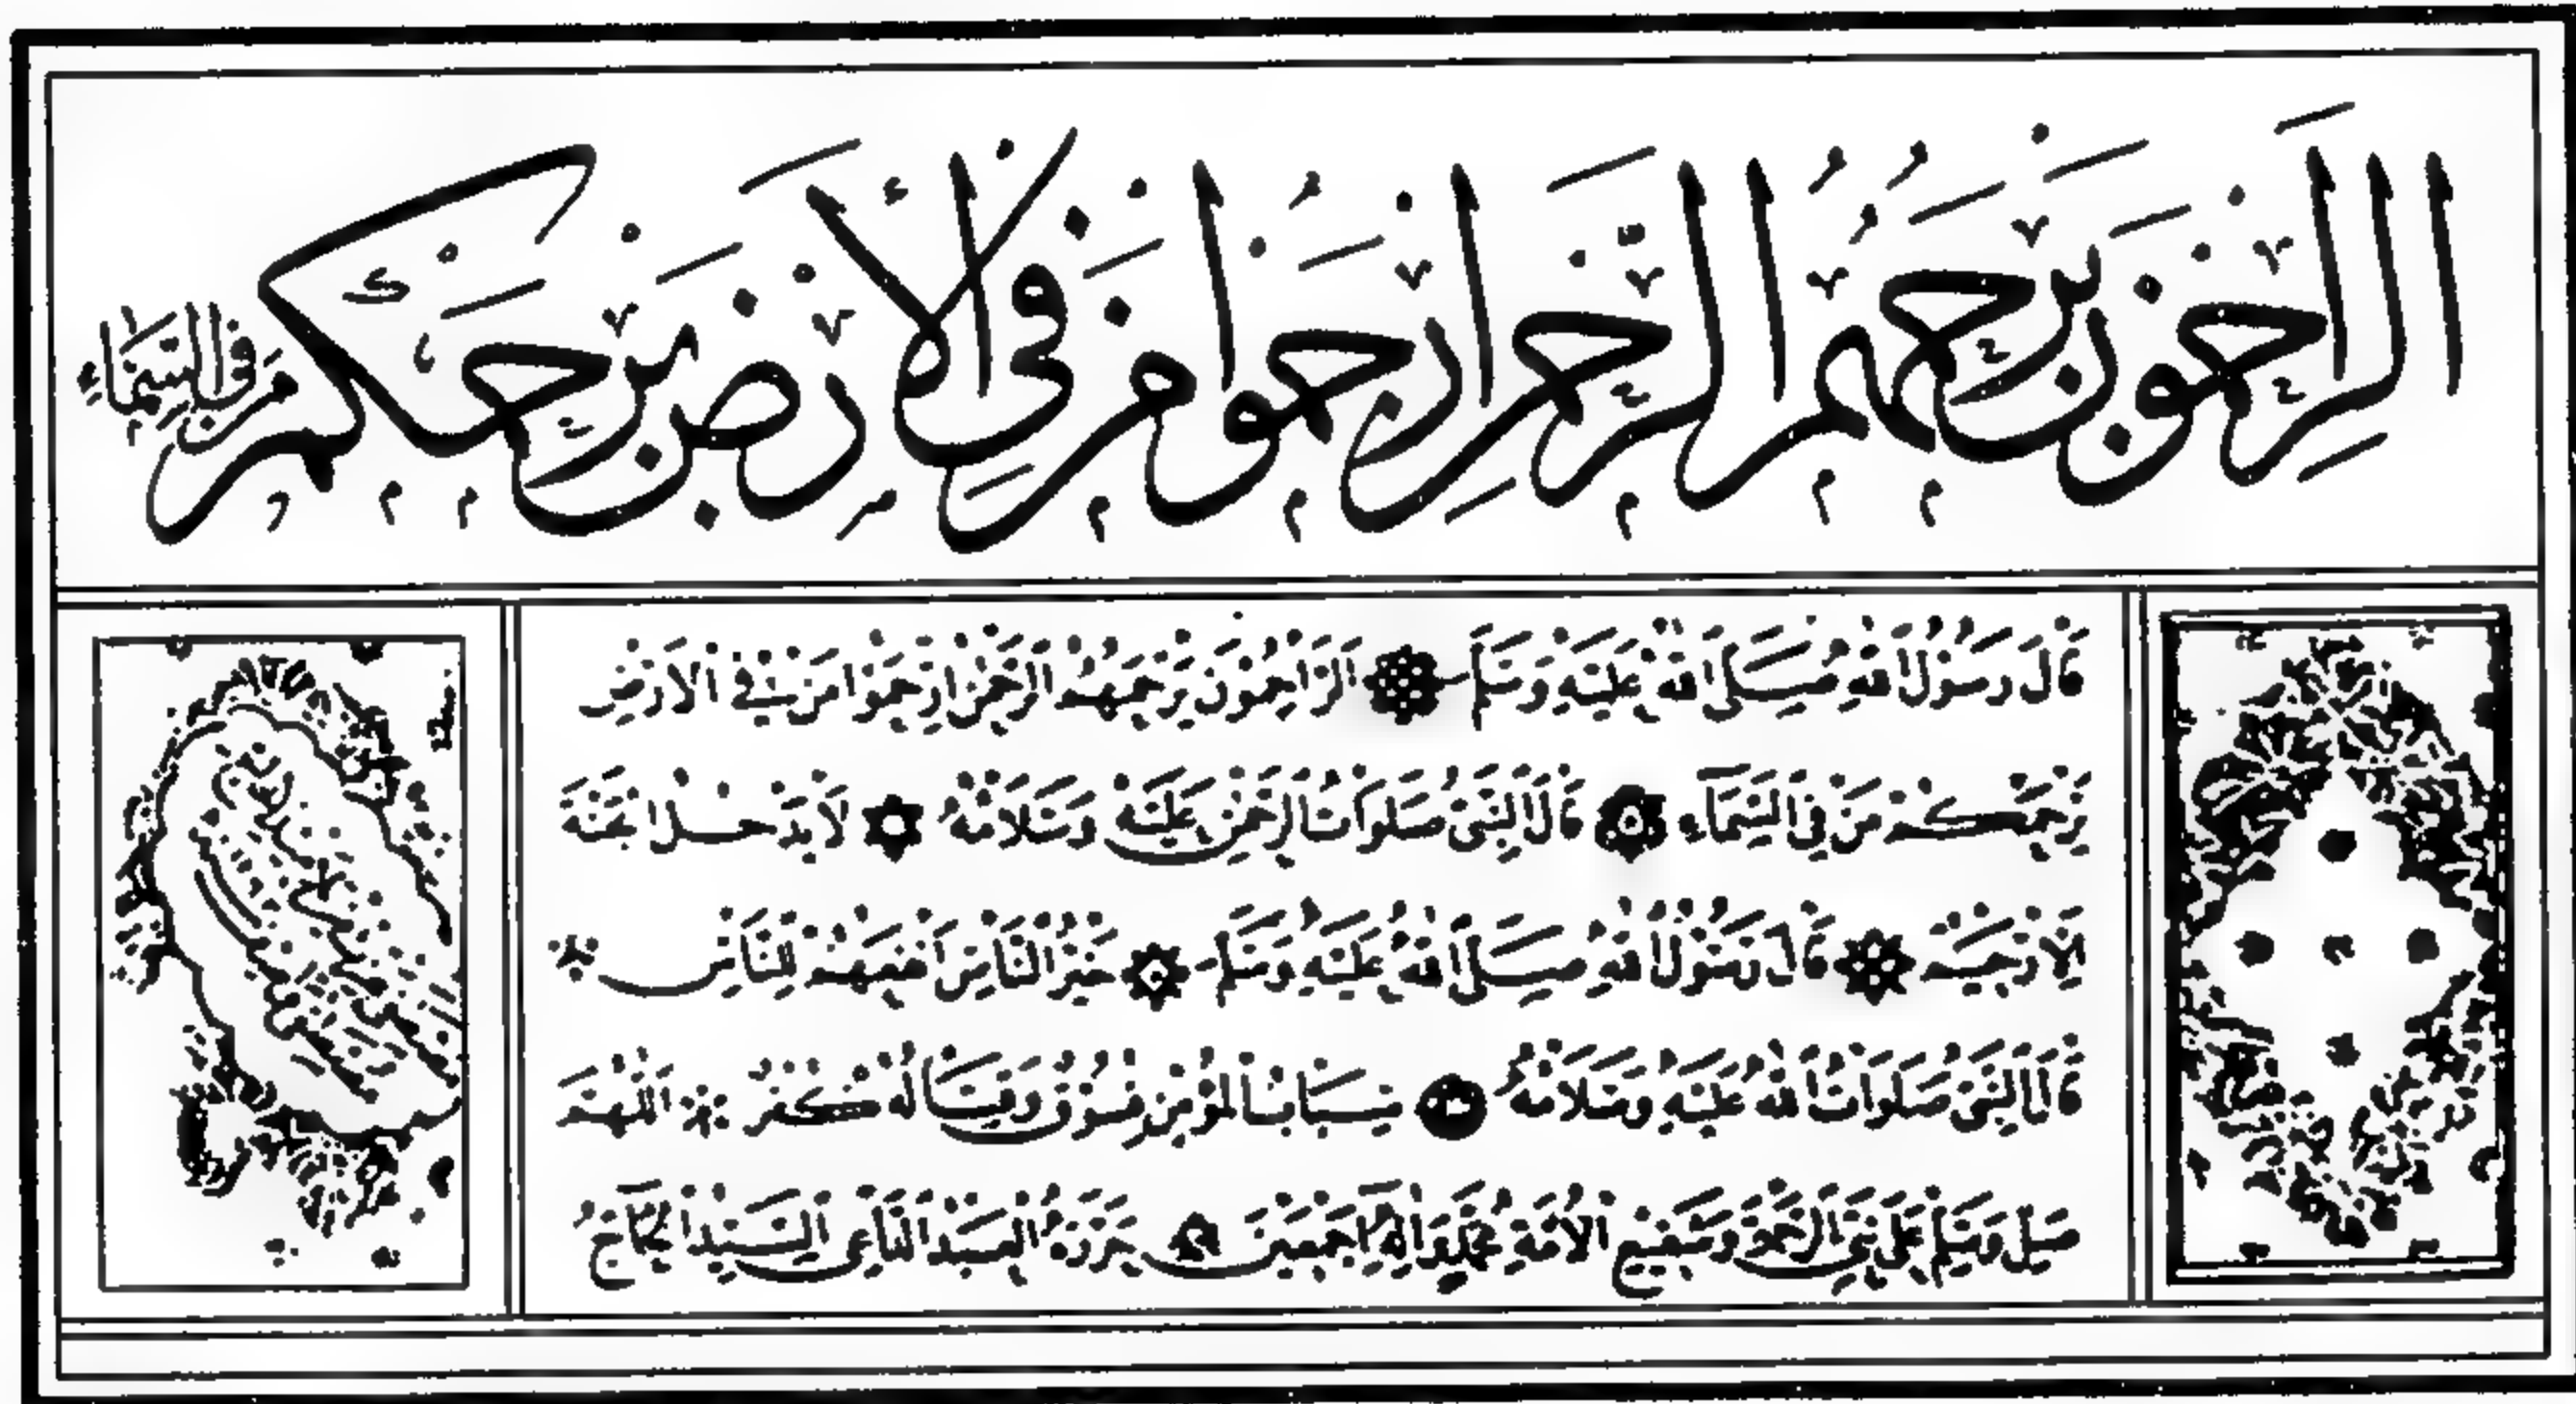 الراحمون يرحمهم الرحمن ارحموا من في الارض يرحمكم من في السماء
قال رسول الله صلى الله عليه وسلم الراحمون يرحمهم الرحمن ارحموا من في الارض
يرحمكم من في السماء قال النبي صلوات الرحمن عليه وسلامه لا يدخل الجنة
الا رحيم قال رسول الله صلى الله عليه وسلم خير الناس انفعهم للناس
قال النبي صلوات الله عليه وسلامه سباب المؤمن فسوق وقتاله كفر اللهم
صل وسلم على نبي الرحمة وشفيع الامة محمد واله اجمعين حرره العبد الداعي السيد الحاج